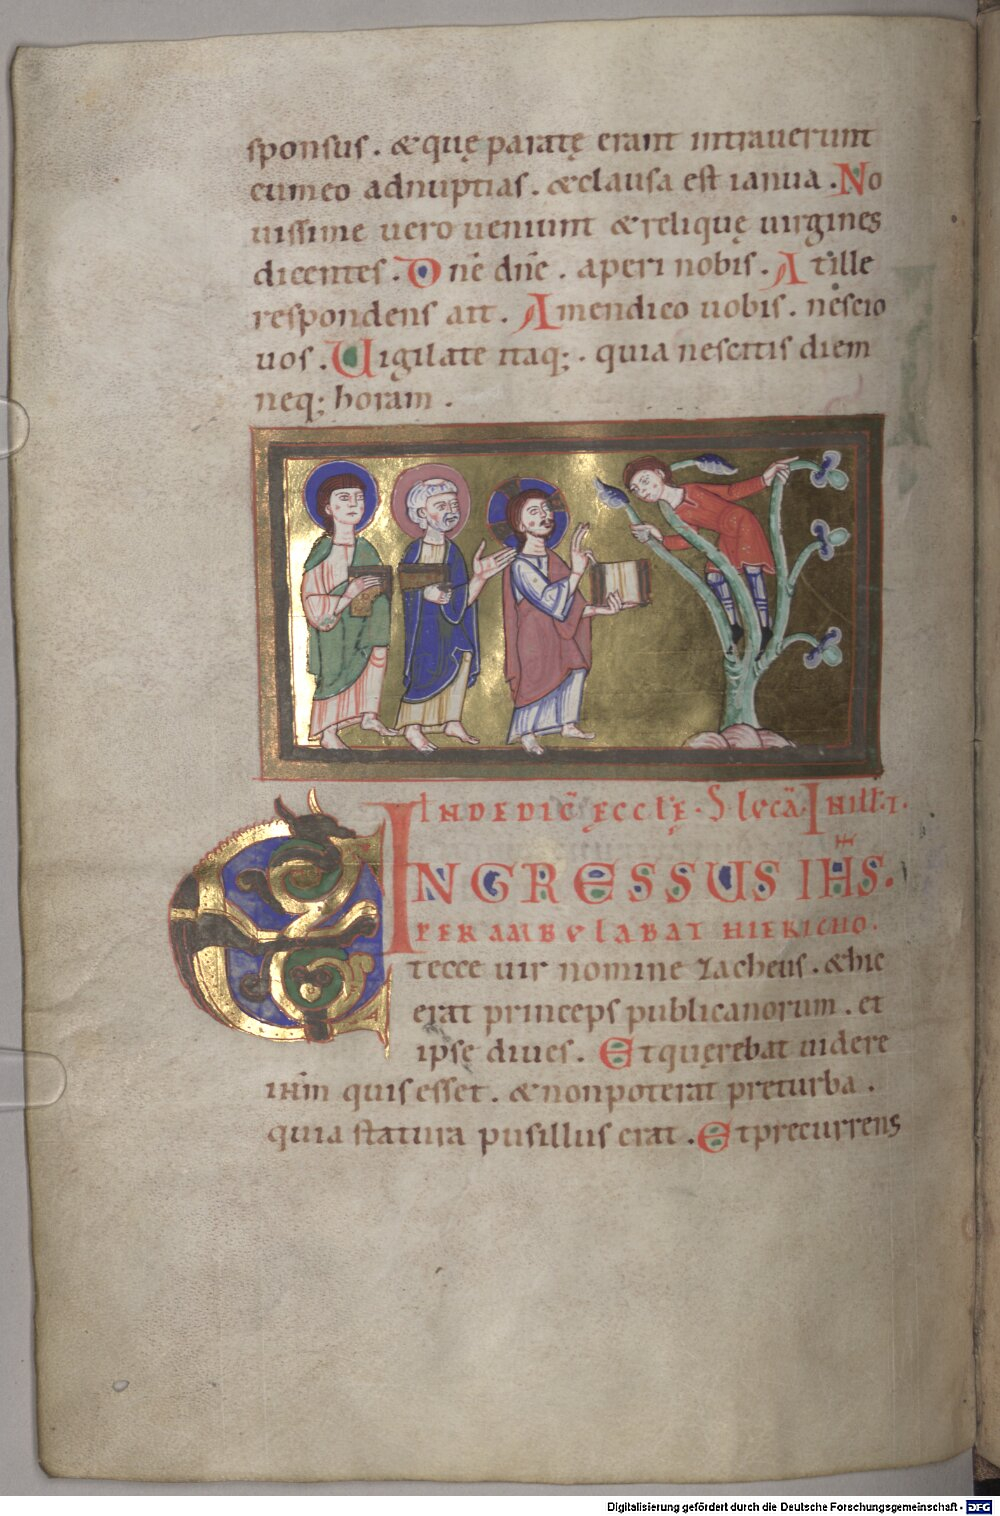 sponsus. &quę paratę erant intrauerunt
cumeo adnuptias. &clausa est ianua. No
uissime uero ueniunt &relique uirgines
dicentes. Dn̄e dn̄e. aperi nobis. At ille
respondens ait. Amendico uobis. nescio
uos. Uigilate itaq;. quia nescitis diem
neq; horam.
IN DEDIC̄ ECCLĘ. S. LVCĀ. IN ILL. T.
INGRESSUS IH̄S.
PERAMBVLABAT HIERICHO.
Et ecce uir nomine zacheus. &hic
erat princeps publicanorum. et
ipse diues. Et quęrebat uidere
ih̄m quis esset. &nonpoterat preturba.
quia statura pusillus erat. Et precurrens
Digitalisierung gefördert durch die Deutsche Forschungsgemeinschaft - DFG